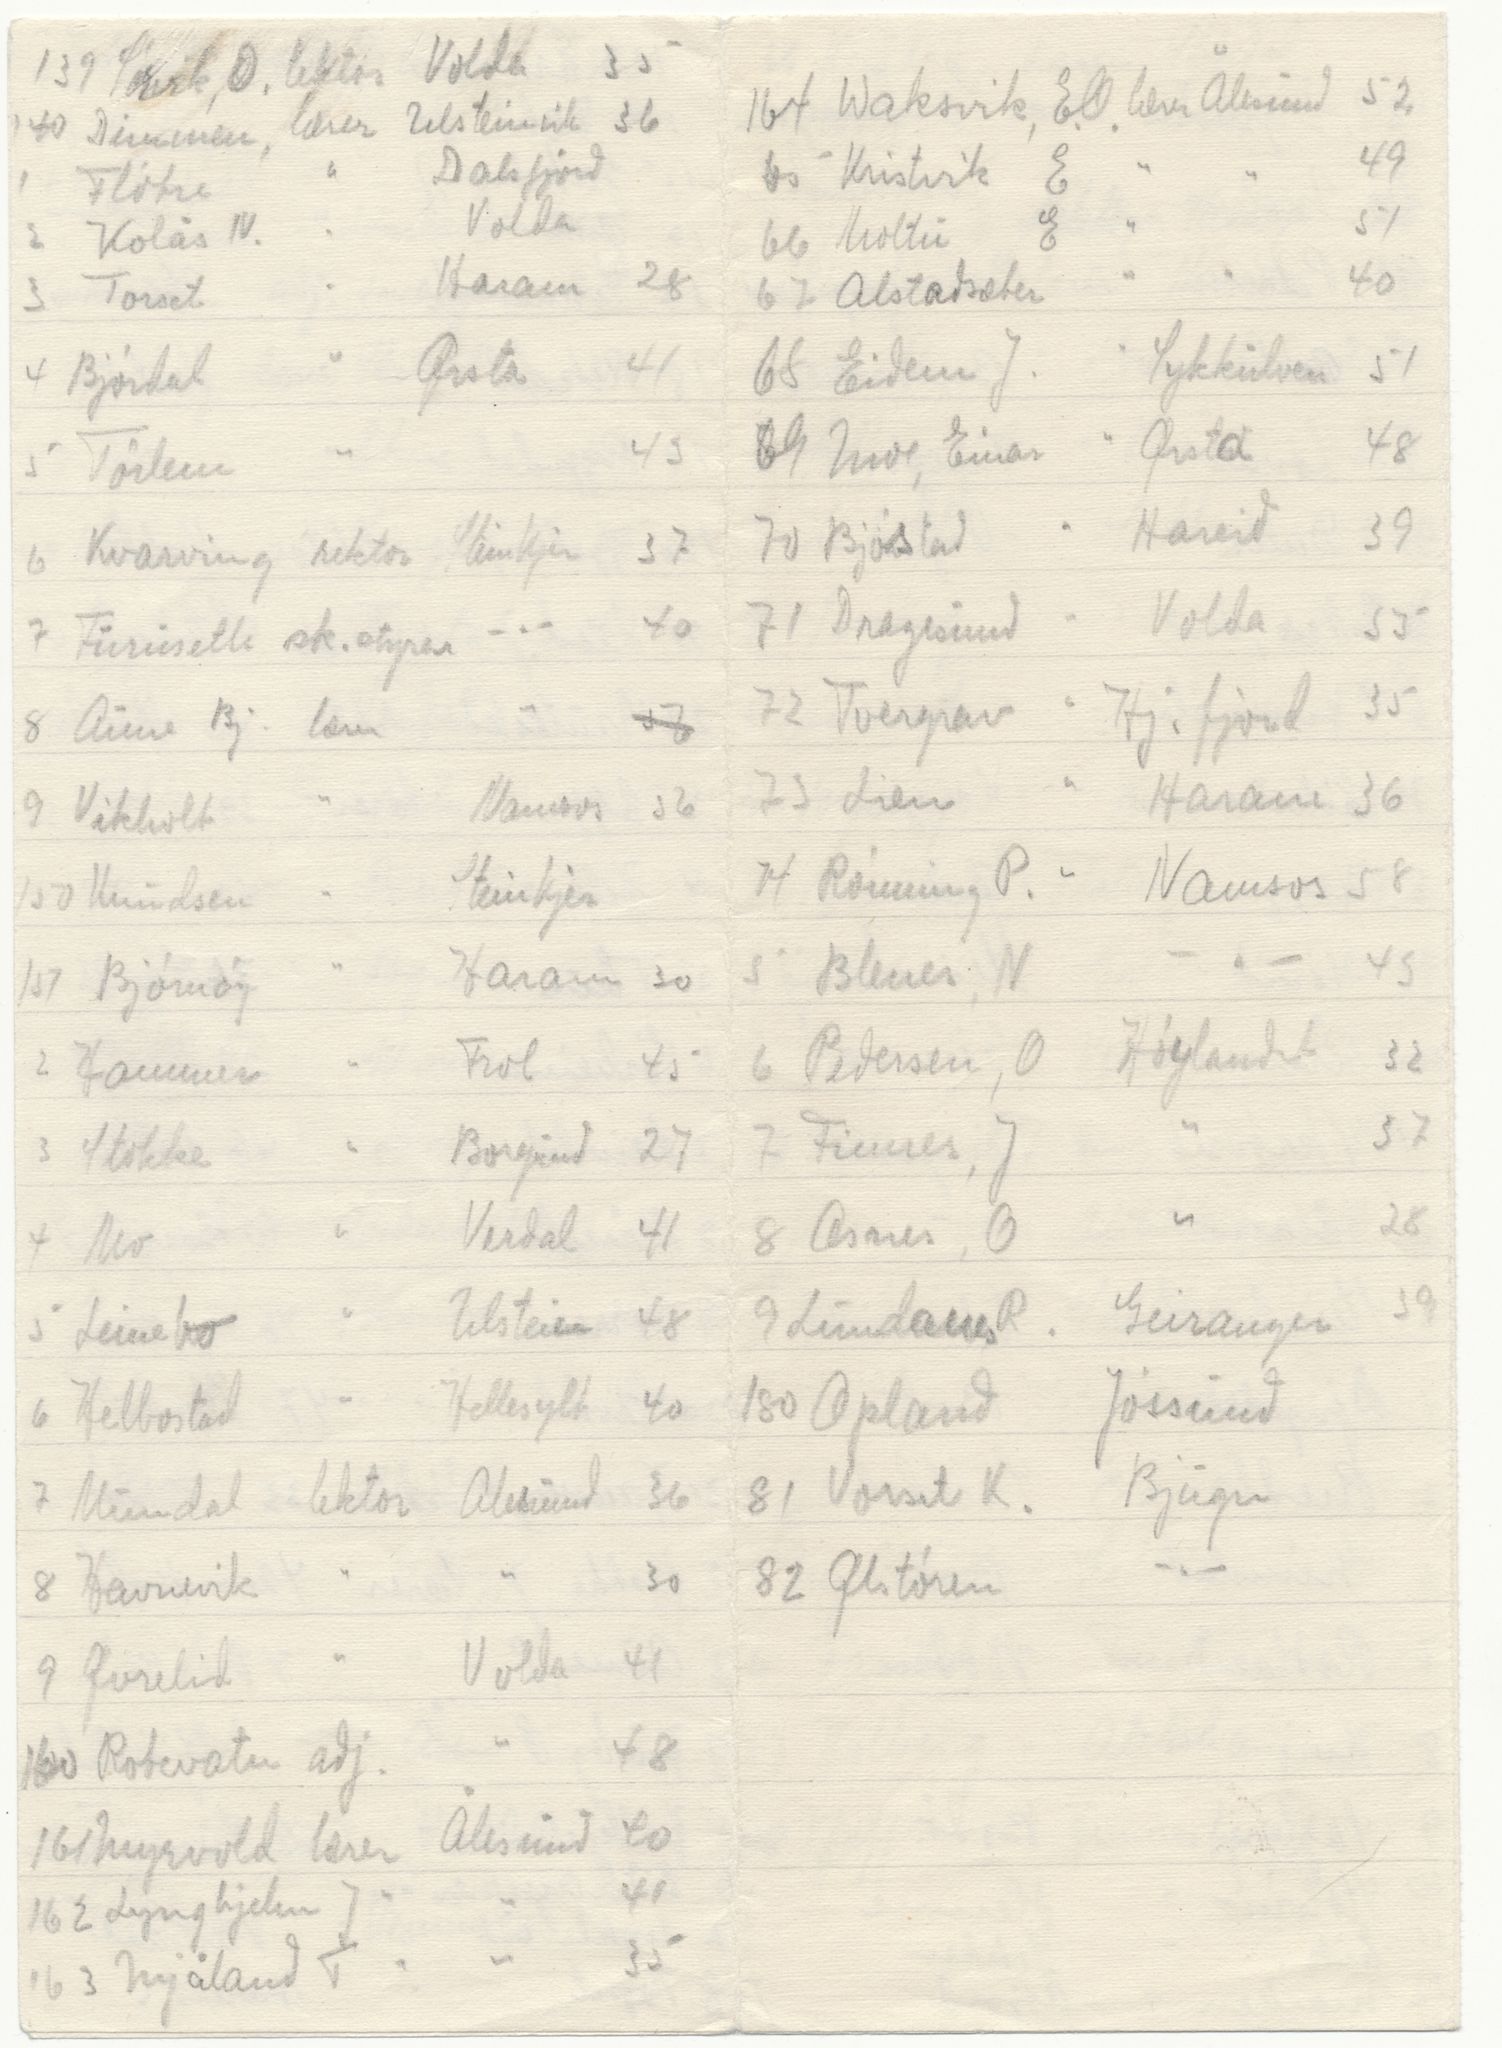 139 O. lektor Volda 35
140 Dimmen, lærer Ulsteinvik 36
1 Flötre " Dalsfjord
2 Kolås N. " Volda
3 Torset " Haram 28
4 Bjórdal " Ørsta 41
5 Tórlem " 43
6 Kvarving rektor Steinkjer 37
7 Furuseth sk.styrer -"- 40
8 Aune Bj. lærer "
9 Vikholt " Namsos 36
150 Knudsen " Steinkjer
151 Björnöy " Haram 30
2 Hammer " Frol 45
3 Stokke " Borgund 27
4 Mo " Verdal 41
5 Leinebø " Ulstein 48
6 Helbostad " Hellesylt 40
7 Mundal lektor Ålesund 36
8 Havnevik " " 30
9 Øvrelid " Volda 41
160 Rotevatn adj. " 48
161 Myrvold lærer Ålesund 40
162 Lynghjelm J " " 41
163 Mjåland T " " 35
164 Waksvik, E.O. lærer Ålesund 52
65 Kristvik E " " 49
66 Moltu E " 51
67 Alstadsæter " " 40
68 Eidem J. " Sykkulven 51
69 Moe, Einar " Ørsta 48
70 Bjóstad " Hareid 39
71 Dragesund " Volda 55
72 Tvergrov " Hj. fjord 35
73 Lien " Haram 36
74 Rönning P. " Namsos 58
5 Blenes, N -"- 43
6 Pedersen, O Höylandet 32
7 Finnes, J " 37
8 Asnes, O " 28
9 Lundanes R. Geiranger 39
180 Opland Jössund
81 Vorset K. Bjugn
82 Ølstören -"-